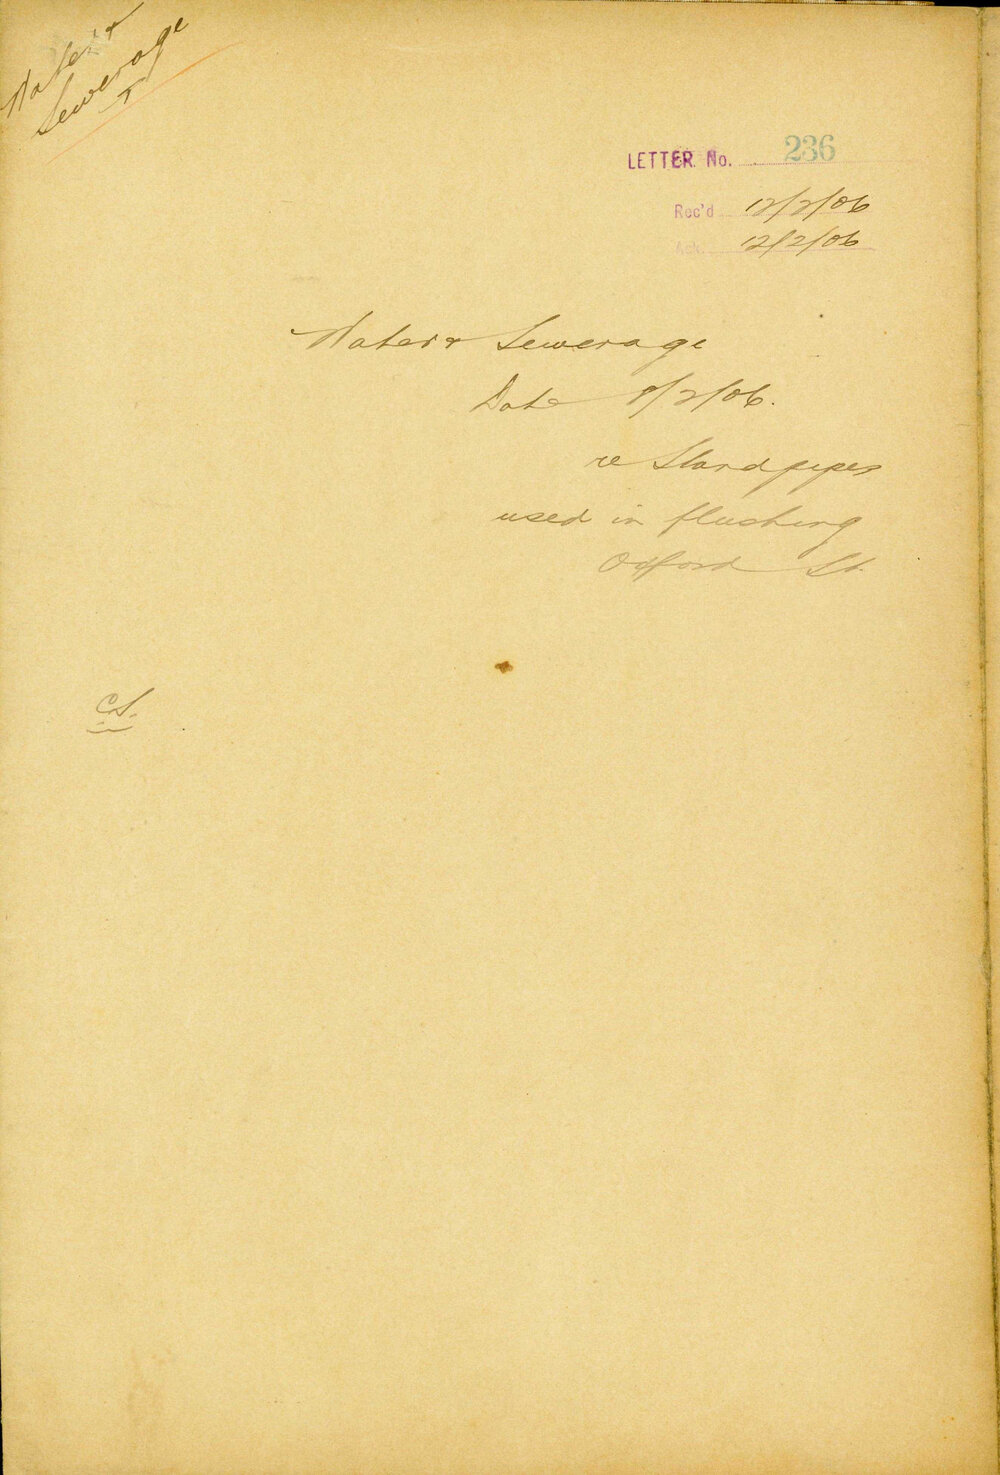 Water &
Sewerage
LETTER No. 236
Rec'd 12/2/06
Ack. 12/2/06
Water & Sewerage
Date 8/2/06.
re Standpipes
used in flushing
Oxford St.
C.S.